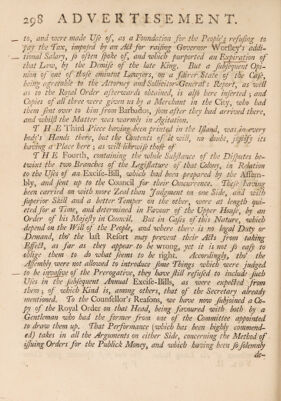 298 ADVERTISEMENT.
to, and were made Use of, as a Foundation for the People's refusing to
pay the Tax, imposed by an Act for raising Governor Worsley's addi-
tional Salary, so often spoke of, and which purported an Expiration of
that Law, by the Demise of the late King. But a subsequent Opi-
nion of one of those eminent Lawyers, on a fairer State of the Case,
being agreeable to the Attorney and Sollicitor-General's Report, as well
as to the Royal Order afterwards obtained, is also here inserted; and
Copies of all three were given us by a Merchant in the City, who had
them sent over to him from Barbados, soon after they had arrived there,
and whilst the Matter was warmly in Agitation.
THE Third Piece having been printed in the Island, was in every
body's Hands there, but the Contents of it will, no doubt, justify its
having a Place here; as will likewise those of
THE Fourth, containing the whole Substance of the Disputes be-
twixt the two Branches of the Legislature of that Colony, in Relation
to the Uses of an Excise-Bill, which had been prepared by the Assem-
bly, and sent up to the Council for their Concurrence. These having
been carried on with more Zeal than Judgment on one Side, and with
superior Skill and a better Temper on the other, were at length qui-
eted for a Time, and determined in Favour of the Upper House, by an
Order of his Majesty in Council. But in Cases of this Nature, which
depend on the Will of the People, and where there is no legal Duty or
Demand, tho' the last Resort may prevent their Acts from taking
Effect, as far as they appear to be wrong, yet it is not so easy to
oblige them to do what seems to be right. Accordingly, tho' the
Assembly were not allowed to introduce some Things which were judged
to be invasive of the Prerogative, they have still refused to include such
Uses in the subsequent Annual Excise-Bills, as were expected from
them; of which Kind is, among others, that of the Secretary already
mentioned. To the Counsellor's Reasons, we have now subjoined a Co-
py of the Royal Order on that Head, being favoured with both by a
Gentleman who had the former from one of the Committee appointed
to draw them up. That Performance (which has been highly commend-
ed) takes in all the Arguments on either Side, concerning the Method of
issuing Orders for the Publick Money, and which having been so solemnly
de-